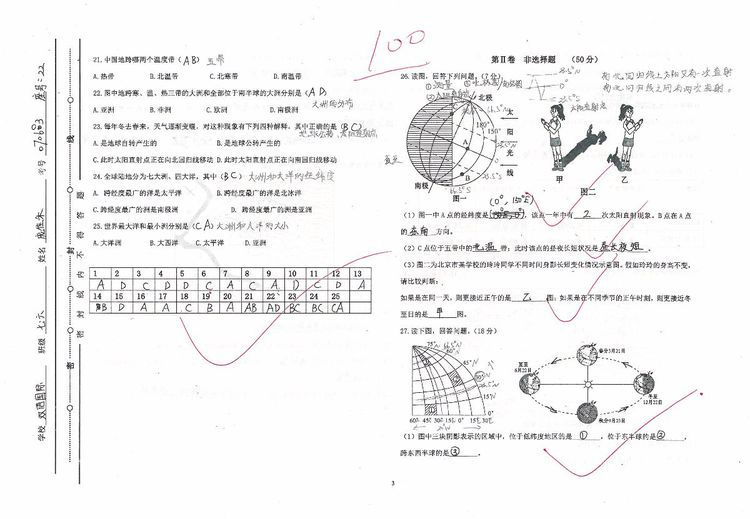 学校 双语国际 班级 七.六 姓名 考号 070603 座号:22
密 封 线 内 不 得 答 题
100
21. 中国地跨哪两个温度带(AB) 五带
A. 热带 B. 北温带 C. 北寒带 D. 南温带
22. 图中地跨寒、温、热三带的大洲和全部位于南半球的大洲分别是(AD)
大洲的分布
A. 亚洲 B. 非洲 C. 欧洲 D. 南极洲
23. 每年冬去春来,天气逐渐变暖,对这种现象有下列四种解释,其中正确的是(BC)
A. 是地球自转产生的 B. 是地球公转产生的
C. 此时太阳直射点正在向北回归线移动 D. 此时太阳直射点正在向南回归线移动
24. 全球陆地分为七大洲、四大洋,其中(BC)大洲和大洋的经纬度
A. 跨经度最广的洋是太平洋 B. 跨经度最广的洋是北冰洋
C. 跨经度最广的洲是南极洲 D. 跨经度最广的洲是亚洲
25. 世界最大洋和最小洲分别是(CA)大洲和大洋的大小
A. 大洋洲 B. 大西洋 C. 太平洋 D. 亚洲
1 2 3 4 5 6 7 8 9 10 11 12 13
A D C D D C A C A D C D A
14 15 16 17 18 19 20 21 22 23 24 25
B D A A C B A AB AD BC BC CA
第Ⅱ卷 非选择题 (50分)
26. 读图,回答下列问题。(7分)
北极
180°
150°
太
阳
光
线
A
B
C
南极
图一
甲 乙
图二
(0°,150°E)
(1)图一中A点的经纬度是,该点一年中有 2 次太阳直射现象。B点在A点
的 东南 方向。
(2)C点位于五带中的 北温 带;此时该点的昼夜长短状况是 昼长夜短。
(3)图二为北京市某学校的玲玲同学不同时间身影长短变化情况示意图。假如玲玲的身高不变,
请比较判断:
如果是在同一天,则更接近正午的是 乙 图;如果是在不同季节的正午时刻,则更接近冬
至日的是 甲 图。
27. 读下图,回答问题。(18分)
75°N
60°N
45°N
30°N
15°N
0°
60°W 45° 30° 15° 0° 15°E 30°E
春分3月21日
夏至
6月22日
冬至
12月22日
秋分9月23日
(1)图中三块阴影表示的区域中,位于低纬度地区的是 ①,位于东半球的是②,
跨东西半球的是③。
3